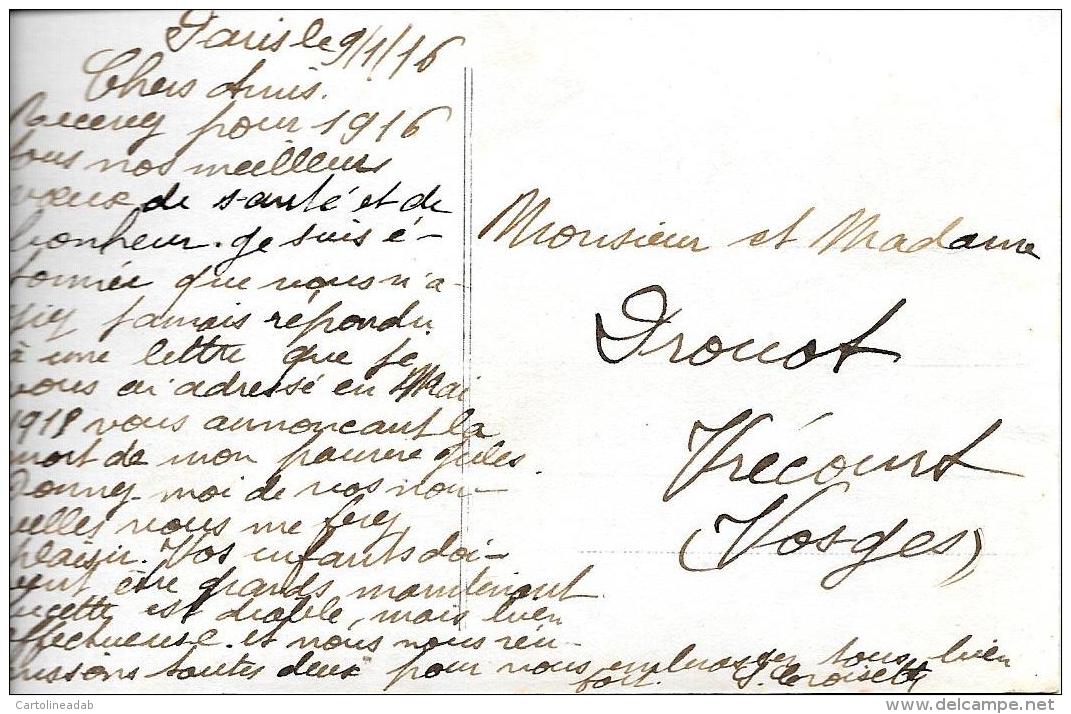 Paris le 9/1/16
Chers Amis.
Recevez pour 1916
tous nos meilleurs
vœux de santé et de
bonheur. Je suis é-
tonnée que vous n'a-
yiez jamais répondu
à une lettre que je
vous ai adressé en Mai
1918 vous annonçant la
mort de mon pauvre Jules.
Donnez-moi de vos nou-
velles vous me ferez
plaisir. Vos enfants doi-
vent être grands maintenant
Lucette est diable, mais bien
affectueuse. et nous nous réu-
nissons toutes deux pour vous embrasser tous bien
fort. J. Croisette
Monsieur et Madame
Drouot
Vrécourt
(Vosges)
© Cartolineadab
delcampe.net